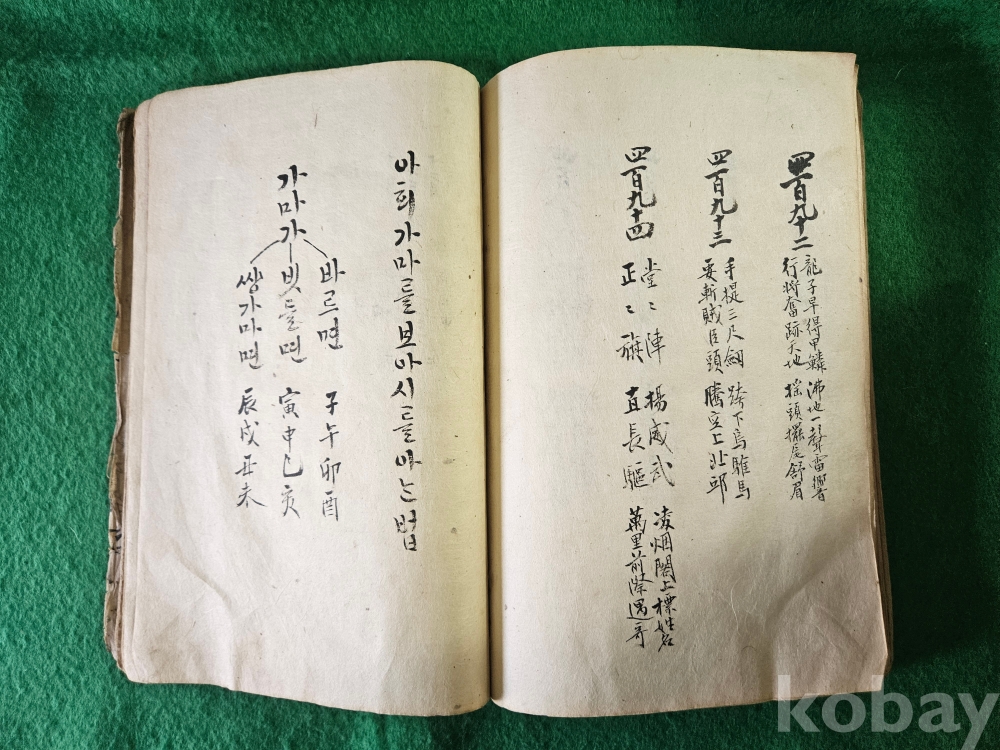 四百九十二
龍子早得甲鱗 沸地一聲雷響
行將奮跡天地 搖頭擺尾舒眉
四百九十三
手提三尺劍 跨下烏騅馬
要斬賊臣頭 騰空上北邱
四百九十四
堂々陣 揚威武 凌烟閣上標姓名
正々旗 直長驅 萬里前 遇哥
아희가마를보아시를아는법
가마가
바르면 子午卯酉
빗들면 寅申巳亥
쌍가마면 辰戌丑未
kobay